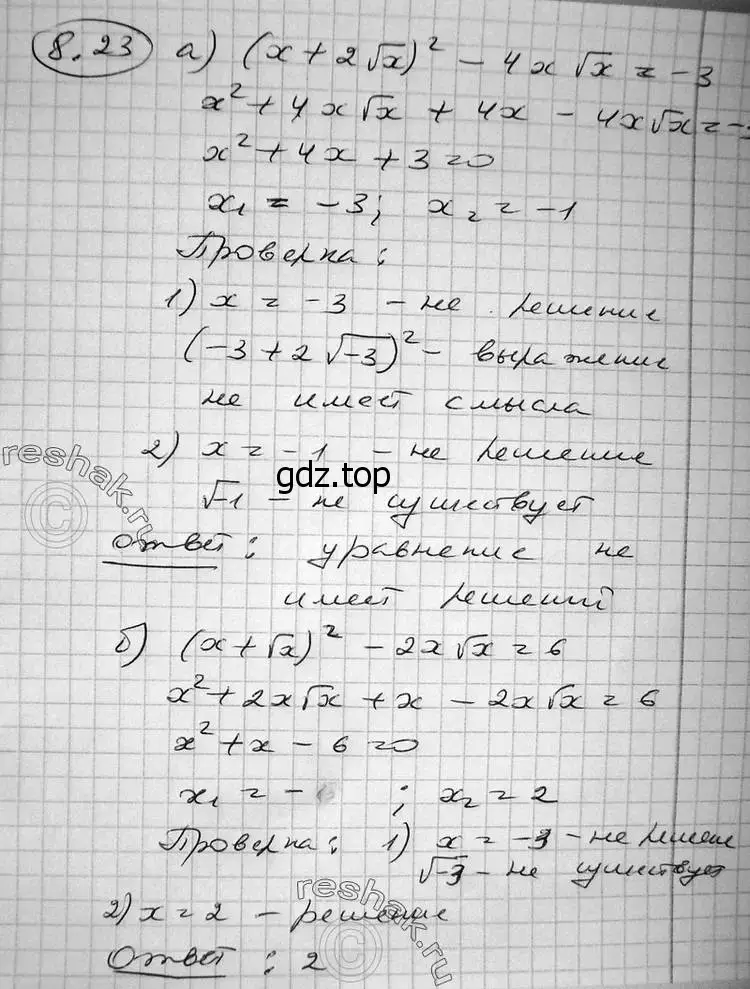 8.23 а) (x + 2√x)² − 4x√x = −3
x² + 4x√x + 4x − 4x√x = −3
x² + 4x + 3 = 0
x₁ = −3; x₂ = −1
Проверка:
1) x = −3 − не решение
(−3 + 2√−3)² − выражение
не имеет смысла
2) x = −1 − не решение
reshak.ru
gdz.top
√−1 − не существует
Ответ: уравнение не
имеет решений
б) (x + √x)² − 2x√x = 6
x² + 2x√x + x − 2x√x = 6
x² + x − 6 = 0
x₁ = − ; x₂ = 2
Проверка: 1) x = −3 − не решение
√−3 − не существует
2) x = 2 − решение
reshak.ru
Ответ: 2